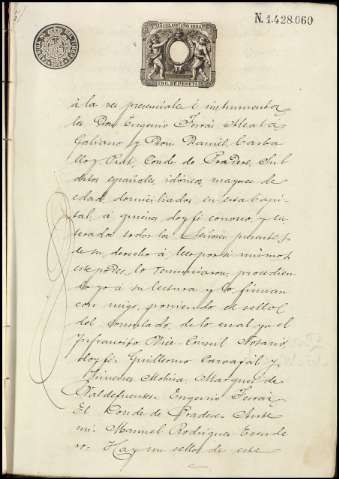 N. 1.428.060
à la vez presenciales é instrumenta
les Don Eugenio Ferraz Alcalá
Galiano y Don Daniel Carba
llo y Prat, Conde de Pradere, Súb
ditos españoles, idóneos, mayores de
edad, domiciliados en esta Capi
tal, á quienes doy fé conozco, y en
terados todos los Señores presentes
de su derecho á leer por sí mismos
este poder, lo renunciaron, procedien
do yo á su lectura y lo firman
con migo, poniendo el sello
del Consulado, de lo cual yo el
infrascrito Vice-Consul Notario
doy fé. Guillermo Carvajal y
Gimenez Molina, Marques de
Valdefuentes. Eugenio Ferraz
El Conde de Pradere. Ante
mi. Manuel Rodriguez Escude
ro. Hay un sello de este